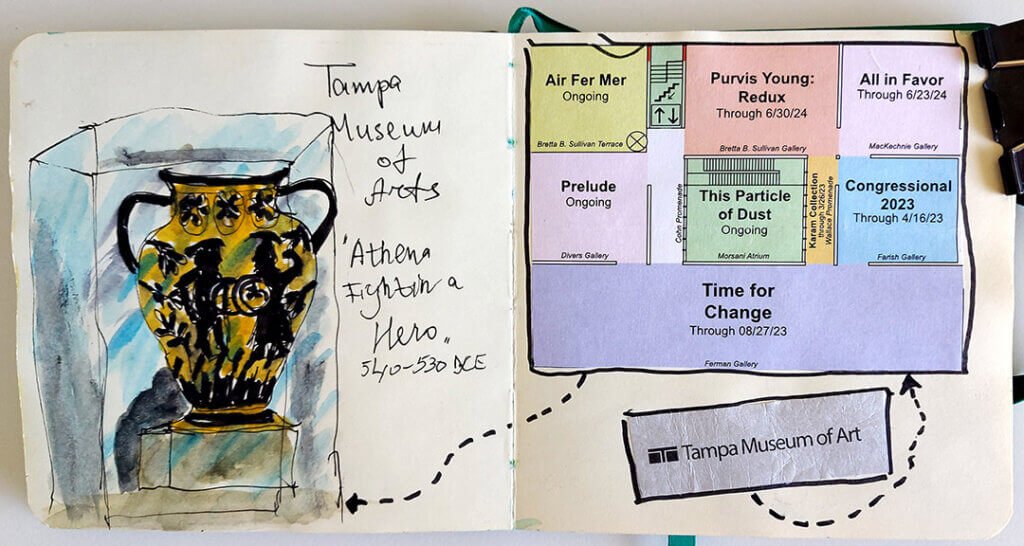 Tampa
Museum
of
Arts
"Athena
Fightin a
Hero„
540-530 BCE
Air Fer Mer
Ongoing
Bretta B. Sullivan Terrace
Purvis Young:
Redux
Through 6/30/24
Bretta B. Sullivan Gallery
All in Favor
Through 6/23/24
MacKechnie Gallery
Prelude
Ongoing
Divers Gallery
Cohn Promenade
This Particle
of Dust
Ongoing
Morsani Atrium
Karam Collection
through 3/26/23
Wallace Promenade
Congressional
2023
Through 4/16/23
Farish Gallery
Time for
Change
Through 08/27/23
Ferman Gallery
Tampa Museum of Art